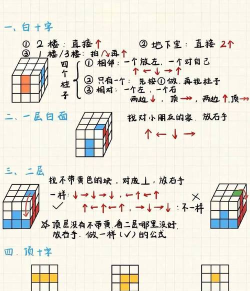 一、白十字
① 2楼：直接↑ ② 地下室：直接 2↑
③ 1楼/3楼：
四个柱子
① 相邻：一个放左，一个对自己
↑←↓→↑
② 只有一个：先按①做，再找柱子
③ 相对：一个左，一个右
两边↓，顶→→，两边↑，顶→→
二、一层白面
找对小朋友的家 放右手
↑←↓→
三、二层
找不带黄色的块，对底⊥，放右手
一样：
：不一样
☆ 顶层没有不带黄，看二层哪里没好，
放右手，做一样(✓)的公式
四、顶十字